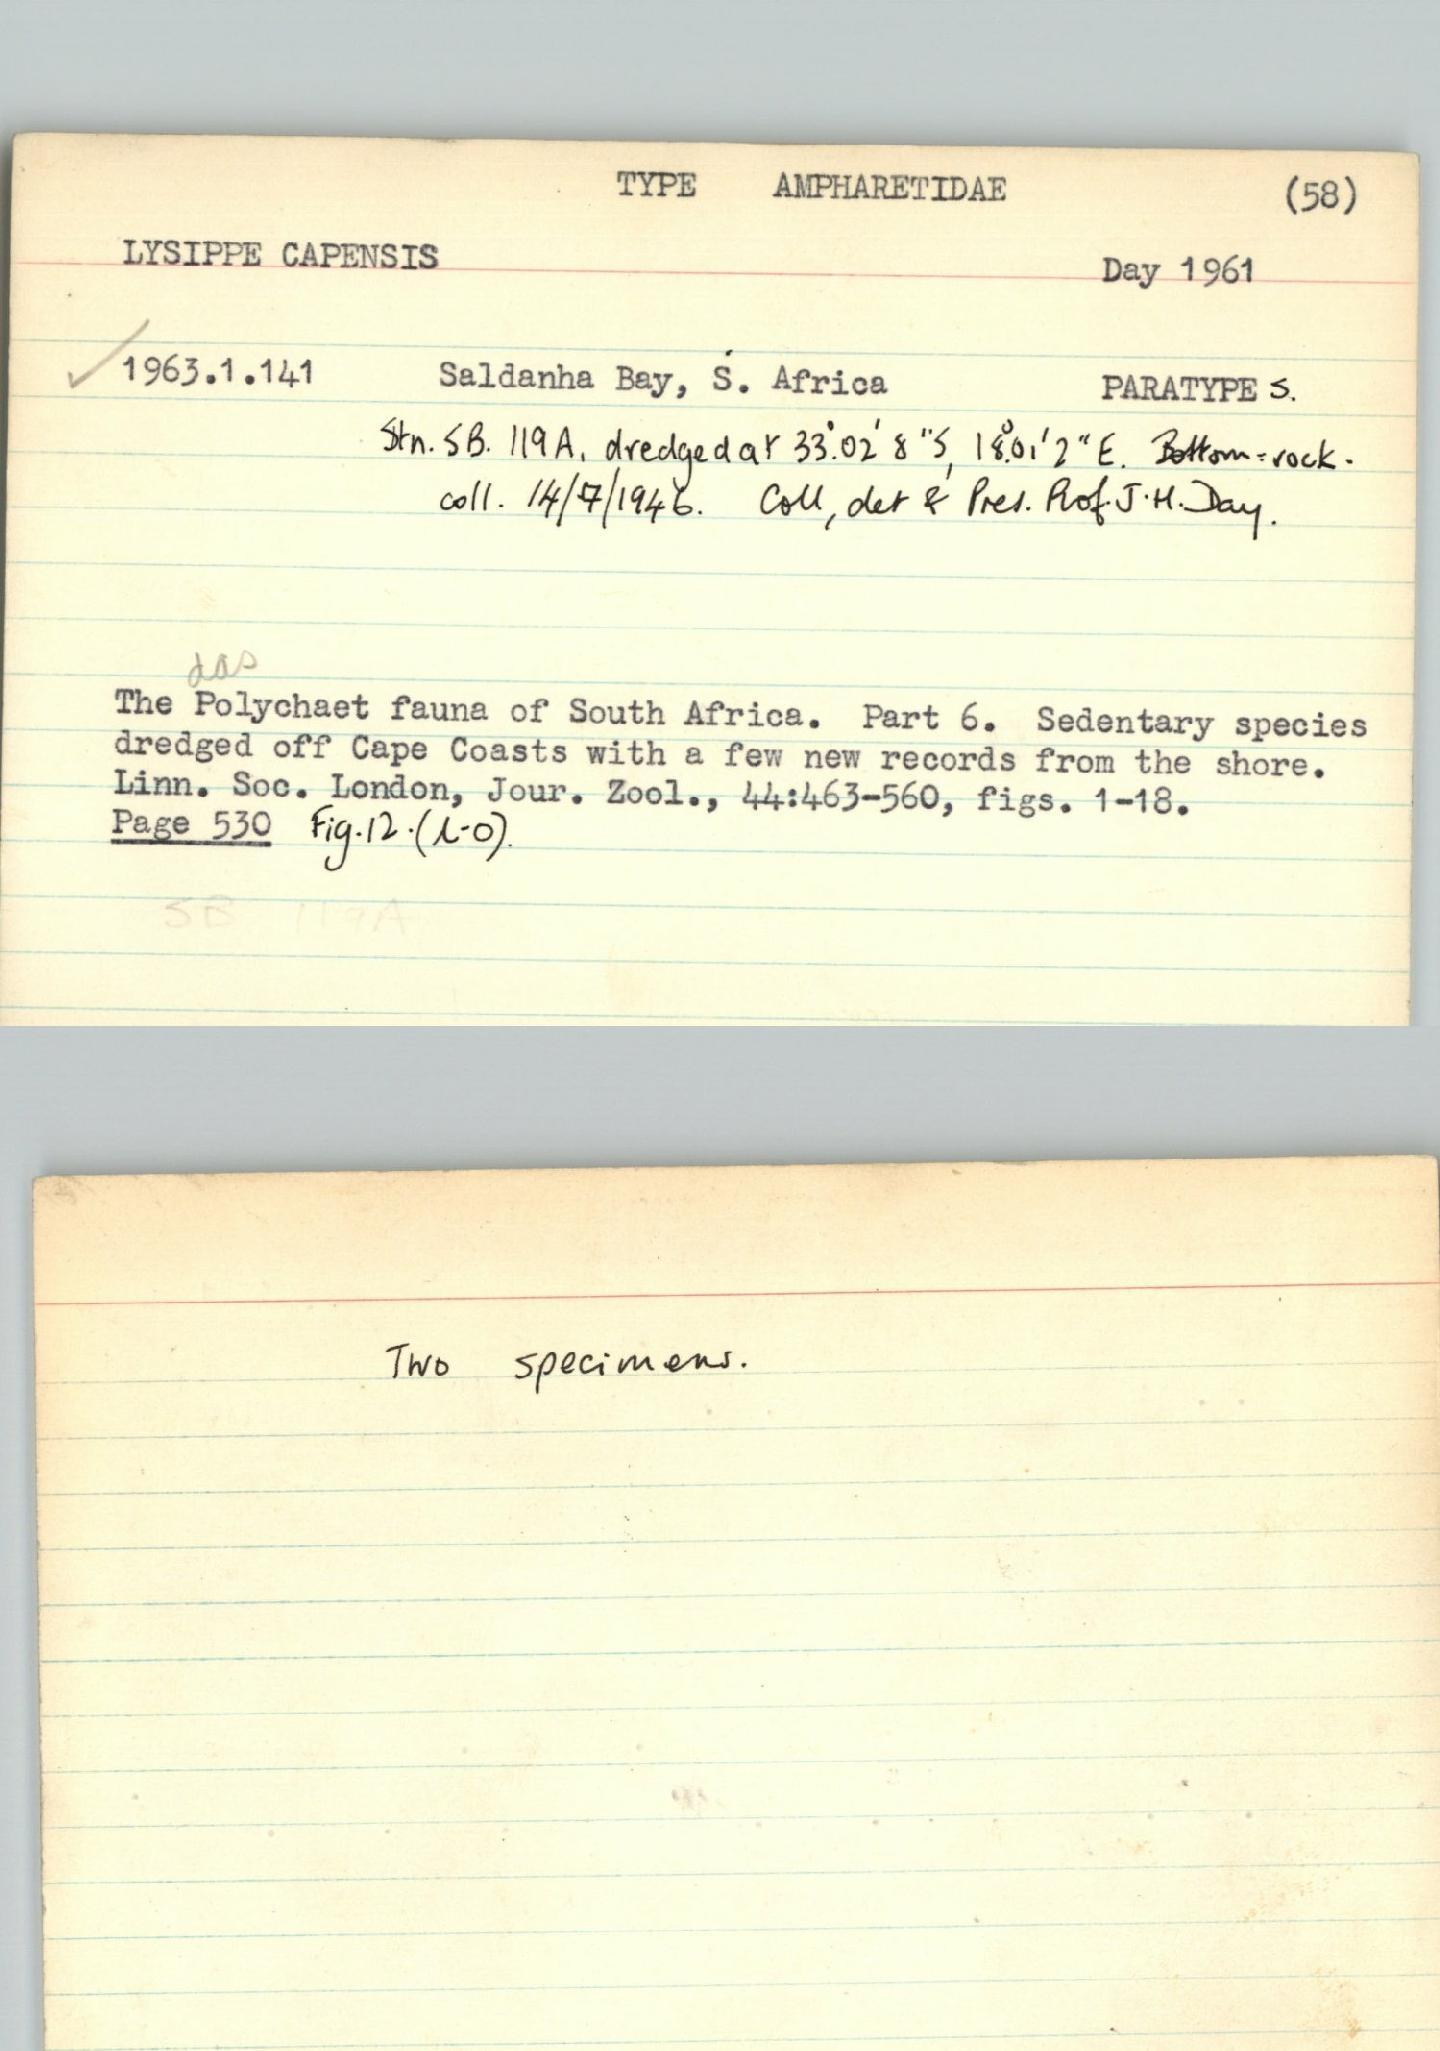 TYPE AMPHARETIDAE (58)
LYSIPPE CAPENSIS Day 1961
1963.1.141 Saldanha Bay, S. Africa PARATYPE S.
Stn. SB. 119A, dredged at 33°02'8"S, 18°01'2"E. Bottom=rock.
coll. 14/7/1946. Coll, det & Pres. Prof. J.H. Day.
das
The Polychaet fauna of South Africa. Part 6. Sedentary species
dredged off Cape Coasts with a few new records from the shore.
Linn. Soc. London, Jour. Zool., 44:463-560, figs. 1-18.
Page 530 Fig.12.(l-o).
SB 119A
Two specimens.